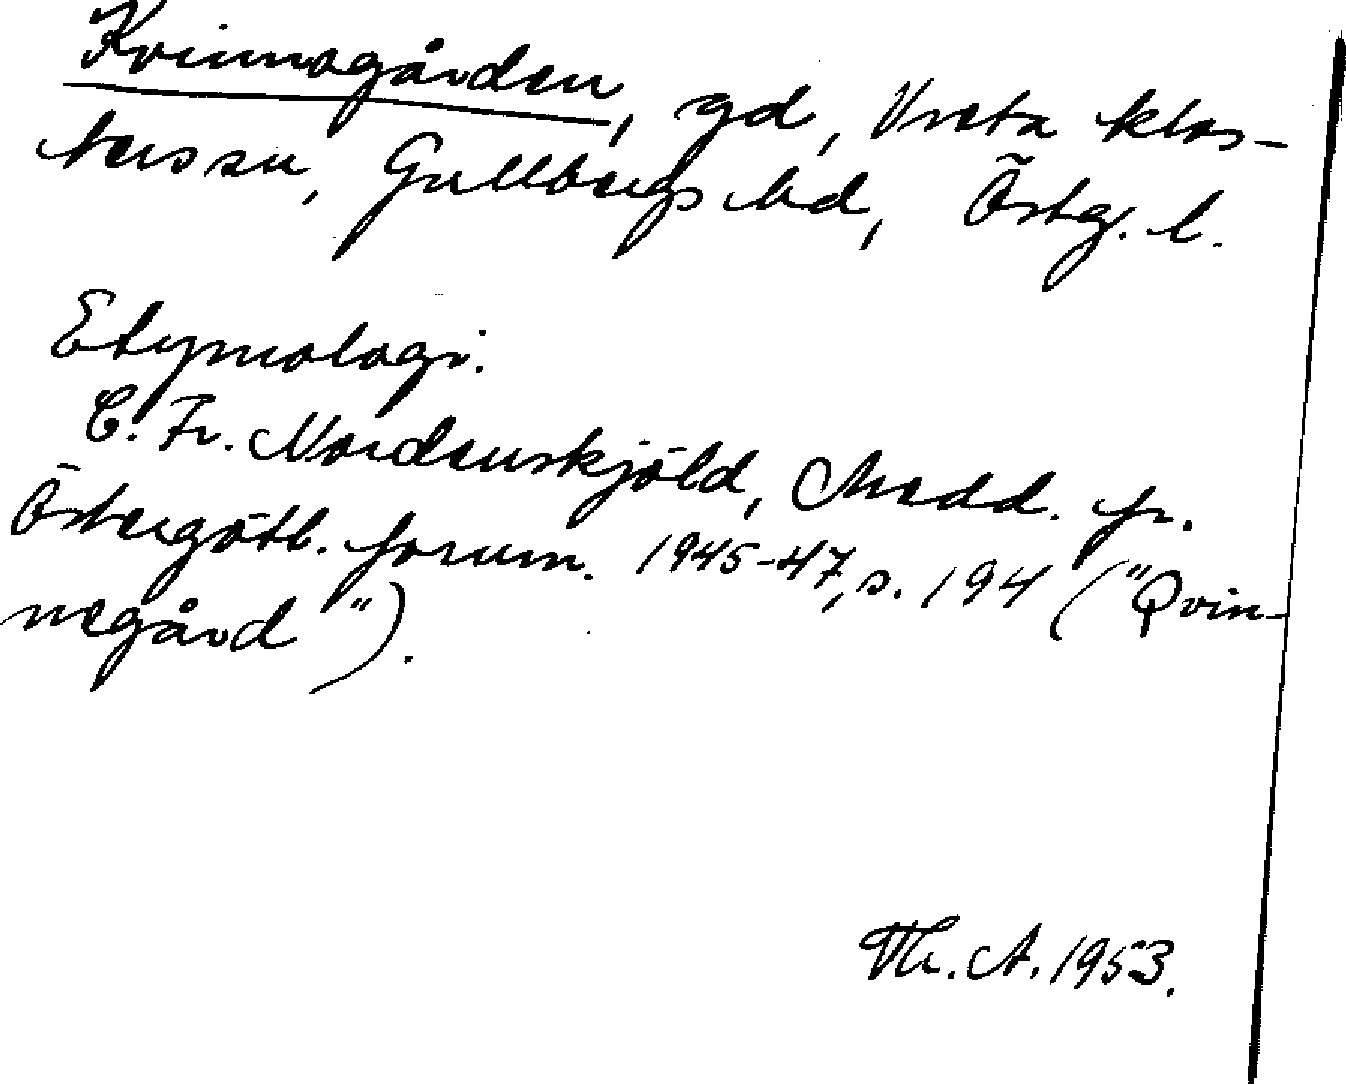 Kvinnogården, gd, Vreta klos-
terssn, Gullbergs hd, Östg. l.
Etymologi.
C. Fr. Nordenskjöld, Medd. fr.
Östergötl. fornm. 1945-47, s. 194 ("Qvin-
negård").
Th. A. 1953.